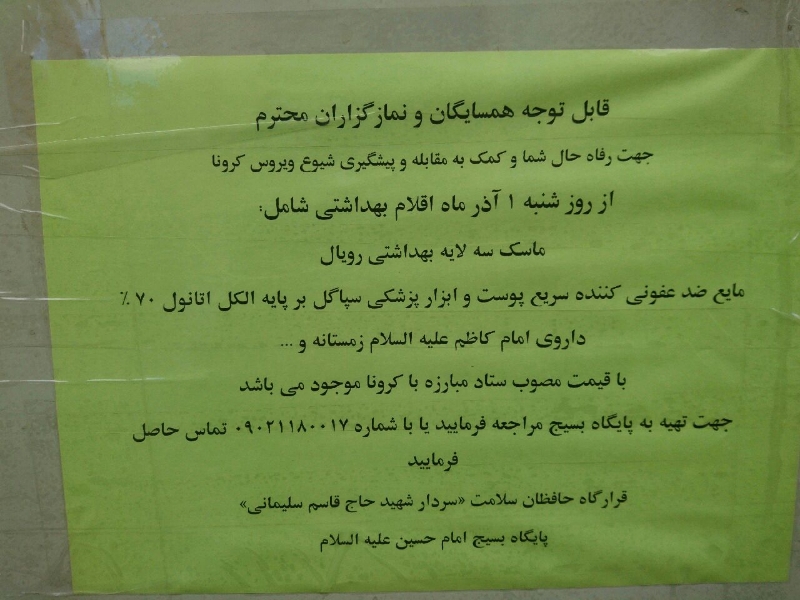 قابل توجه همسایگان و نمازگزاران محترم
جهت رفاه حال شما و کمک به مقابله و پیشگیری شیوع ویروس کرونا
از روز شنبه ۱ آذر ماه اقلام بهداشتی شامل:
ماسک سه لایه بهداشتی رویال
مایع ضد عفونی کننده سریع پوست و ابزار پزشکی سپاگل بر پایه الکل اتانول ۷۰ ٪
داروی امام کاظم علیه السلام زمستانه و ...
با قیمت مصوب ستاد مبارزه با کرونا موجود می باشد
جهت تهیه به پایگاه بسیج مراجعه فرمایید یا با شماره ۰۹۰۲۱۱۸۰۰۱۷ تماس حاصل
فرمایید
قرارگاه حافظان سلامت «سردار شهید حاج قاسم سلیمانی»
پایگاه بسیج امام حسین علیه السلام